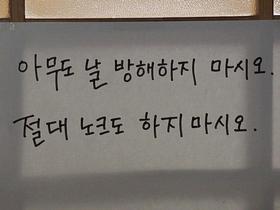 아무도 날 방해하지 마시오.
절대 노크도 하지 마시오.